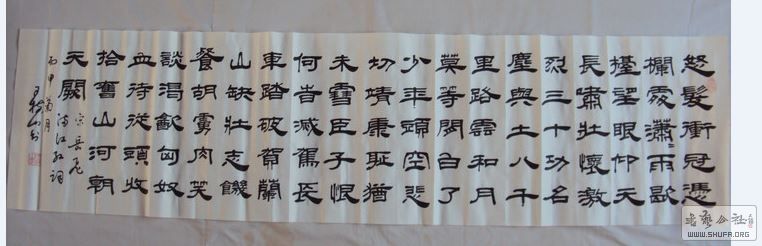 怒髮衝冠憑
欄處瀟〻雨歇
擡望眼仰天
長嘯壯懷激
烈三十功名
塵與土八千
里路雲和月
莫等閒白了
少年頭空悲
切靖康恥猶
未雪臣子恨
何旹滅駕長
車踏破賀蘭
山缺壯志饑
餐胡虜肉笑
談渴飲匈奴
血待從頭收
拾舊山河朝
天闕
宋岳飛
滿江紅詞
丙申菊月
WWW.SHUFA.ORG